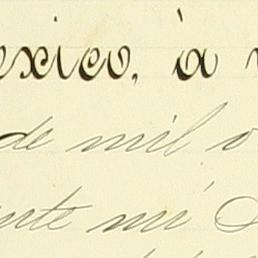 exico, à
de mil o
ente mi